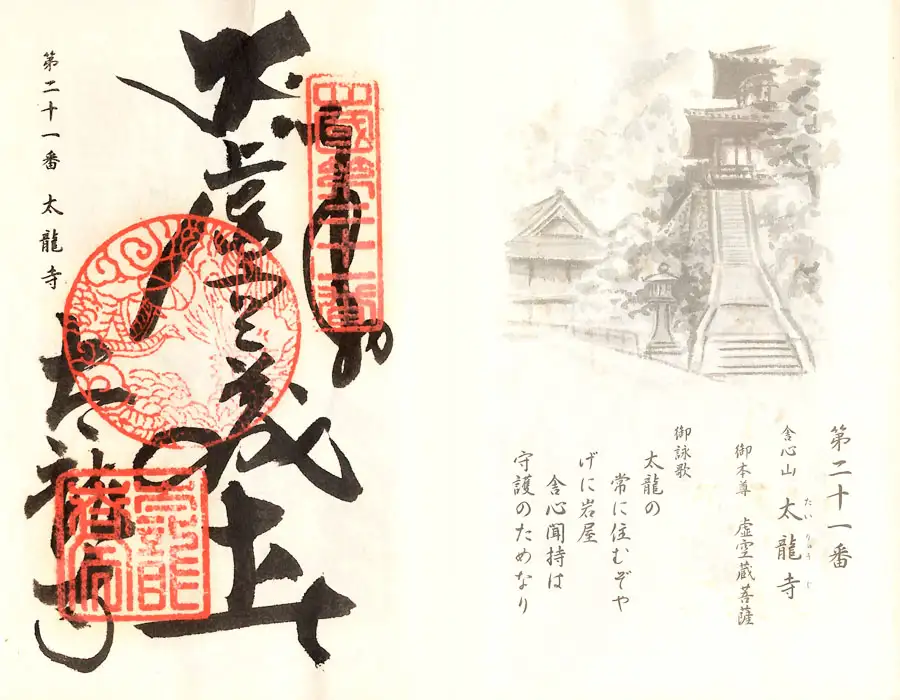 第二十一番
舎心山 太龍寺
たいりゅうじ
御本尊 虚空蔵菩薩
御詠歌
太龍の
常に住むぞや
げに岩屋
舎心聞持は
守護のためなり
奉納
四國第二十一番
太龍寺
第二十一番 太龍寺